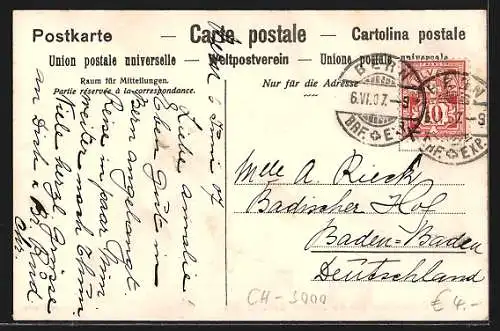 Postkarte — Carte postale — Cartolina postale
Union postale universelle — Weltpostverein — Unione postale universale
Raum für Mitteilungen.
Partie réservée à la correspondance.
Nur für die Adresse
BERN
6.VI.07.-9
BRF. EXP.
BERN
BRF. EXP.
10
6 Juni 07
Liebe Amalie!
Eben gut in
Bern angelangt.
Reise in paar
weiter nach Thun
Viele herzl Grüsse
an Dich
Mlle A. Rieck
Badischer Hof
Baden=Baden
Deutschland
CH-3000
€ 4.-